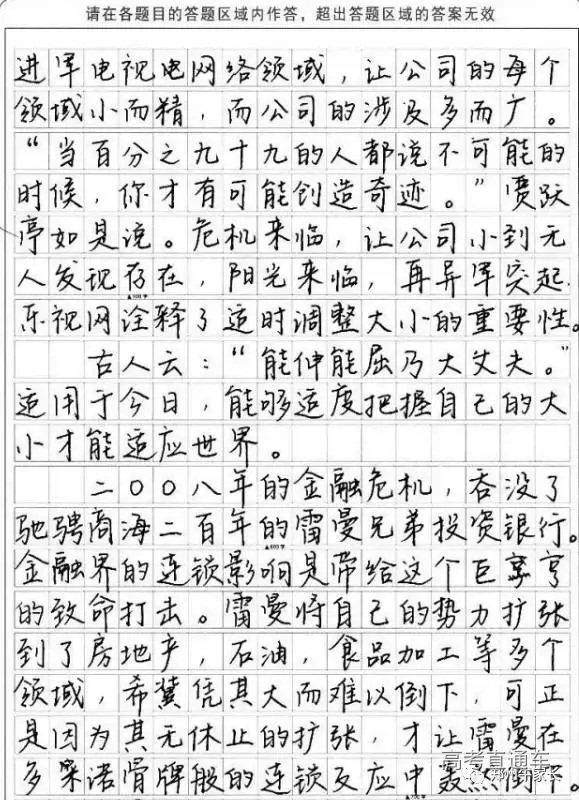 请在各题目的答题区域内作答，超出答题区域的答案无效
进军电视电网络领域，让公司的每个
领域小而精，而公司的涉及多而广。
“当百分之九十九的人都说不可能的
时候，你才有可能创造奇迹。”贾跃
亭如是说。危机来临，让公司小到无
人发现存在，阳光来临，再异军突起，
乐视网诠释了适时调整大小的重要性。
古人云：“能伸能屈乃大丈夫。”
适用于今日，能够适度把握自己的大
小才能适应世界。
二〇〇八年的金融危机，吞没了
驰骋商海二百年的雷曼兄弟投资银行。
金融界的连锁影响是带给这个巨
的致命打击。雷曼将自己的势力扩张
到了房地产，石油，食品加工等多个
领域，希冀凭其大而难以倒下，可正
是因为其无休止的扩张，才让雷曼在
多米诺骨牌般的连锁反应中轰然倒下。
高考直通车